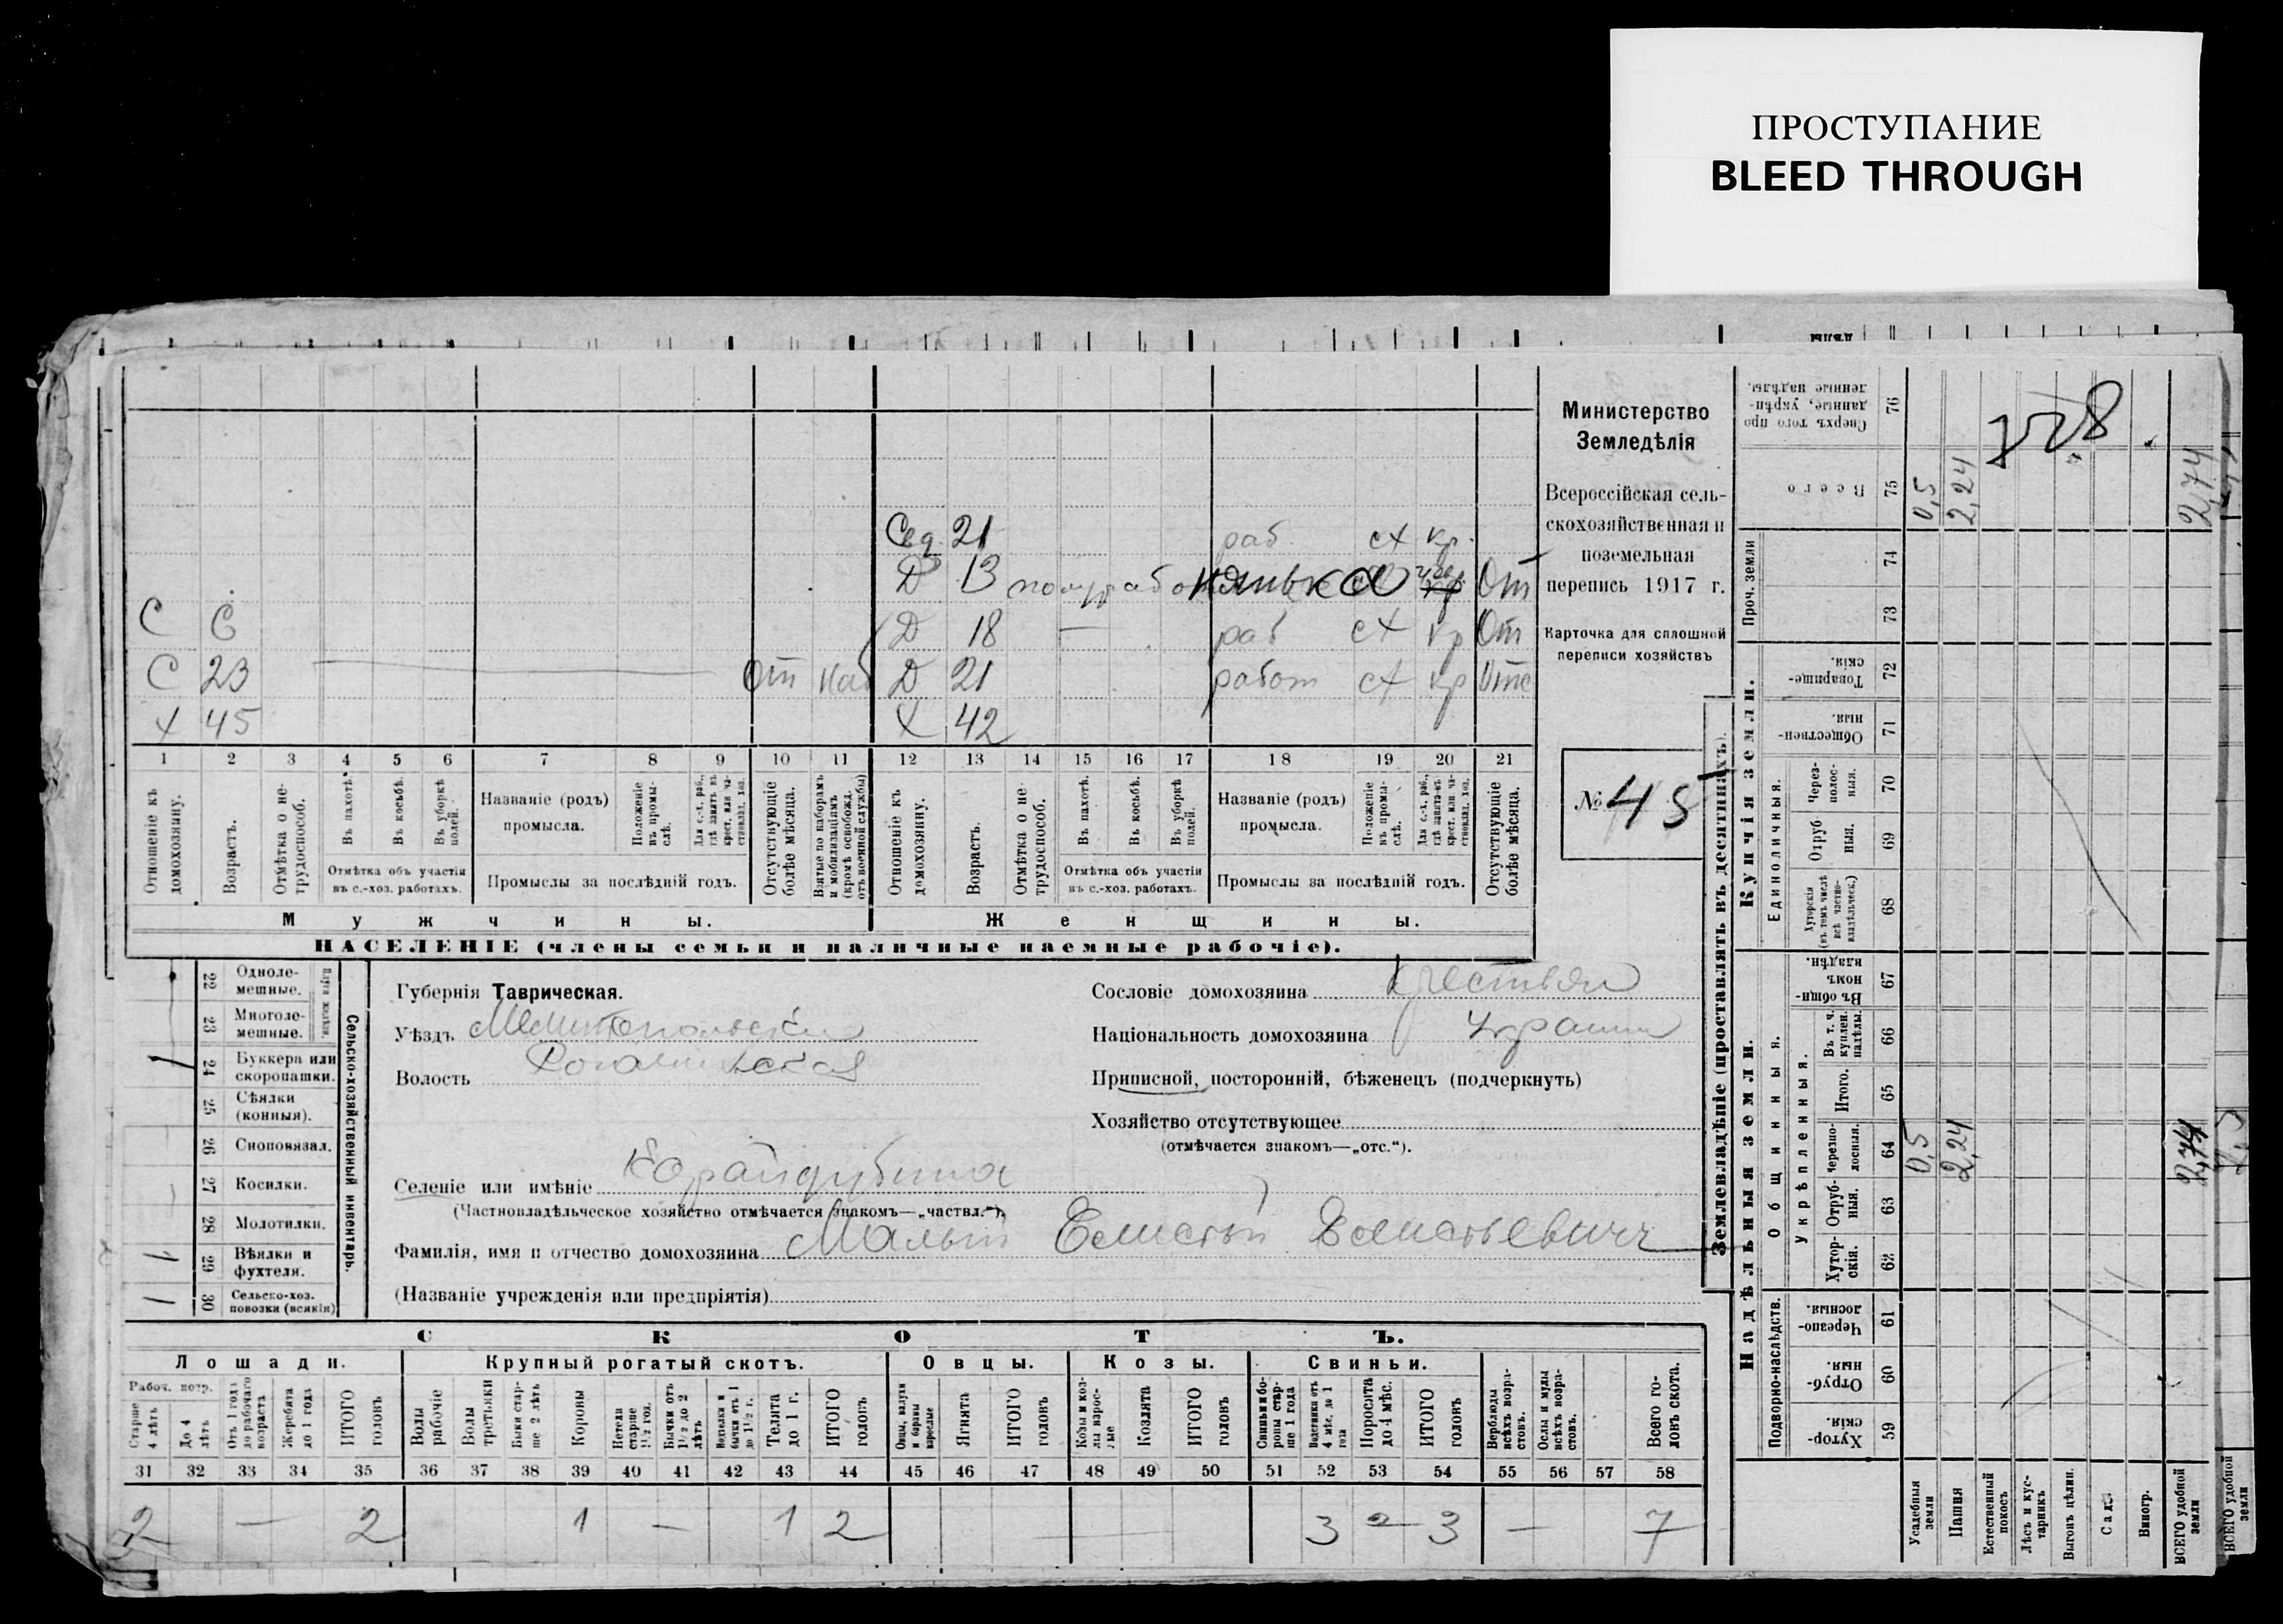 ПРОСТУПАНИЕ
BLEED THROUGH
Министерство
Земледѣлія
Всероссійская сель-
скохозяйственная и
поземельная
перепись 1917 г.
Карточка для сплошной
переписи хозяйствъ
№ 45
Сед 21 раб сх кр.
Д 13 полураб нянька От
С 6
Д 18 — раб сх кр От
С 23 От
Д 21 работ сх кр Отс
Х 45
Х 42
1 2 3 4 5 6 7 8 9 10 11 12 13 14 15 16 17 18 19 20 21
Отношеніе къ домохозяину.
Возрастъ.
Отмѣтка о не-трудоспособ.
Въ пахотѣ.
Въ косьбѣ.
Въ уборкѣ полей.
Отмѣтка объ участіи
въ с.-хоз. работахъ.
Названіе (родъ)
промысла.
Положеніе въ промы-слѣ.
Для с.-х. раб., гдѣ занятъ въ крест. или ча-ствовлад. хоз.
Промыслы за послѣдній годъ.
Отсутствующіе болѣе мѣсяца.
Взятые по наборамъ и мобилизаціямъ (кромѣ освобожд. отъ военной службы)
Отношеніе къ домохозяину.
Возрастъ.
Отмѣтка о не-трудоспособ.
Въ пахотѣ.
Въ косьбѣ.
Въ уборкѣ полей.
Отмѣтка объ участіи
въ с.-хоз. работахъ.
Названіе (родъ)
промысла.
Положеніе въ промы-слѣ.
Для с.-х. раб., гдѣ занята въ крест. или ча-ствовлад. хоз.
Промыслы за послѣдній годъ.
Отсутствующіе болѣе мѣсяца.
Мужчины.
Женщины.
НАСЕЛЕНІЕ (члены семьи и наличные наемные рабочіе).
22 Одноле-мешные.
23 Многоле-мешные.
24 Буккера или скоропашки. 1
25 Сѣялки (конныя).
26 Сноповязал.
27 Косилки.
28 Молотилки.
29 Вѣялки и фухтеля. 1
30 Сельско-хоз. повозки (всякія) 1
Сельско-хозяйственный инвентарь.
Губернія Таврическая.
Уѣздъ Мелитопольскій
Волость
Селеніе или имѣніе
(Частновладѣльческое хозяйство отмѣчается знакомъ—„частвл.“).
Фамилія, имя и отчество домохозяина Малый
(Названіе учрежденія или предпріятія)
Сословіе домохозяина крестьян
Національность домохозяина Украин
Приписной, посторонній, бѣженецъ (подчеркнуть)
Хозяйство отсутствующее
(отмѣчается знакомъ—„отс.“).
СКОТЪ.
Лошади.
Крупный рогатый скотъ.
Овцы.
Козы.
Свиньи.
Рабоч. возр.
Старше 4 лѣтъ
До 4 лѣтъ
Отъ 1 года до рабочаго возраста
Жеребята до 1 года
ИТОГО головъ
Волы рабочіе
Волы третьяки
Быки стар-ше 2 лѣтъ
Коровы
Нетели старше 1½ год.
Бычки отъ 1½ до 2 лѣтъ
Нетелки и бычки отъ 1 до 1½ г.
Телята до 1 г.
ИТОГО головъ
Овцы, валухи и бараны взрослые
Ягнята
ИТОГО головъ
Козы и коз-лы взрос-лые
Козлята
ИТОГО головъ
Свиньи и бо-ровы стар-ше 1 года
Подсвинки отъ 4 мѣс. до 1 года
Поросята до 4 мѣс.
ИТОГО головъ
Верблюды всѣхъ возра-стовъ.
Ослы и мулы всѣхъ возра-стовъ.
Всего го-ловъ скота.
31 32 33 34 35 36 37 38 39 40 41 42 43 44 45 46 47 48 49 50 51 52 53 54 55 56 57 58
2 — 2 1 — 1 2 — 3 3 — 7
Землевладѣніе (проставлять въ десятинахъ).
Купчія земли.
Надѣльныя земли.
Сверхъ того про-данные, укрѣп-ленные надѣлы. 76
Всего 75 0,5 2,24 2,74
228
Проч. земли 74 73
Товарище-скія. 72
Обществен-ныя. 71
Единоличныя.
Через-полос-ныя. 70
Отруб-ныя. 69
Хуторскія (въ томъ числѣ всѣ частно-владѣльческ.) 68
Въ общи-номъ владѣн. 67
Общинныя.
Укрѣпленныя.
Въ т. ч. куплен. надѣлы. 66
Итого. 65
черезпо-лосныя. 64 0,5 2,24 2,74
Отруб-ныя. 63
Хутор-скія. 62
Подворно-наслѣдств.
Черезпо-лосныя. 61
Отруб-ныя. 60
Хутор-скія. 59
Усадебныя земли
Пашня
Естественный покосъ
Лѣсъ и кус-тарникъ
Выгонъ цѣлин.
Сады
Виногр.
ВСЕГО удобной земли
ВСЕГО удобной земли